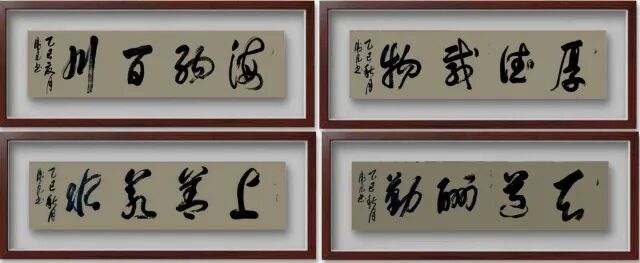 海纳百川
乙巳夏月
厚德载物
乙巳秋月
上善若水
乙巳秋月
天道酬勤
乙巳秋月